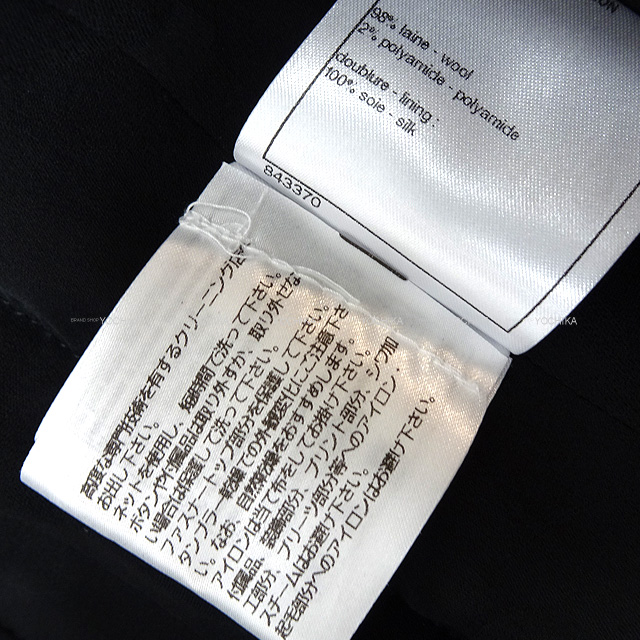 98% laine - wool
2% polyamide - polyamide
doublure - lining :
100% soie - silk
843370
高度な専門技術を有するクリーニング店
お出し下さい。
ネットを使用し、 短時間で洗って下さい。
ボタンや付属品は取り外すか、 取り外せな
い場合は保護して洗って下さい。
ファスナー トップ部分を保護して下さい。
アイロンは当て布をしてお掛け下さい。
付属品、 プリント部分、 シワ加
工部分、 プリーツ部分等へのアイロン、
スチームはお避け下さい。
起毛部分へのアイロンはお避け下さい。
BRAND SHOP
YOSHIKA